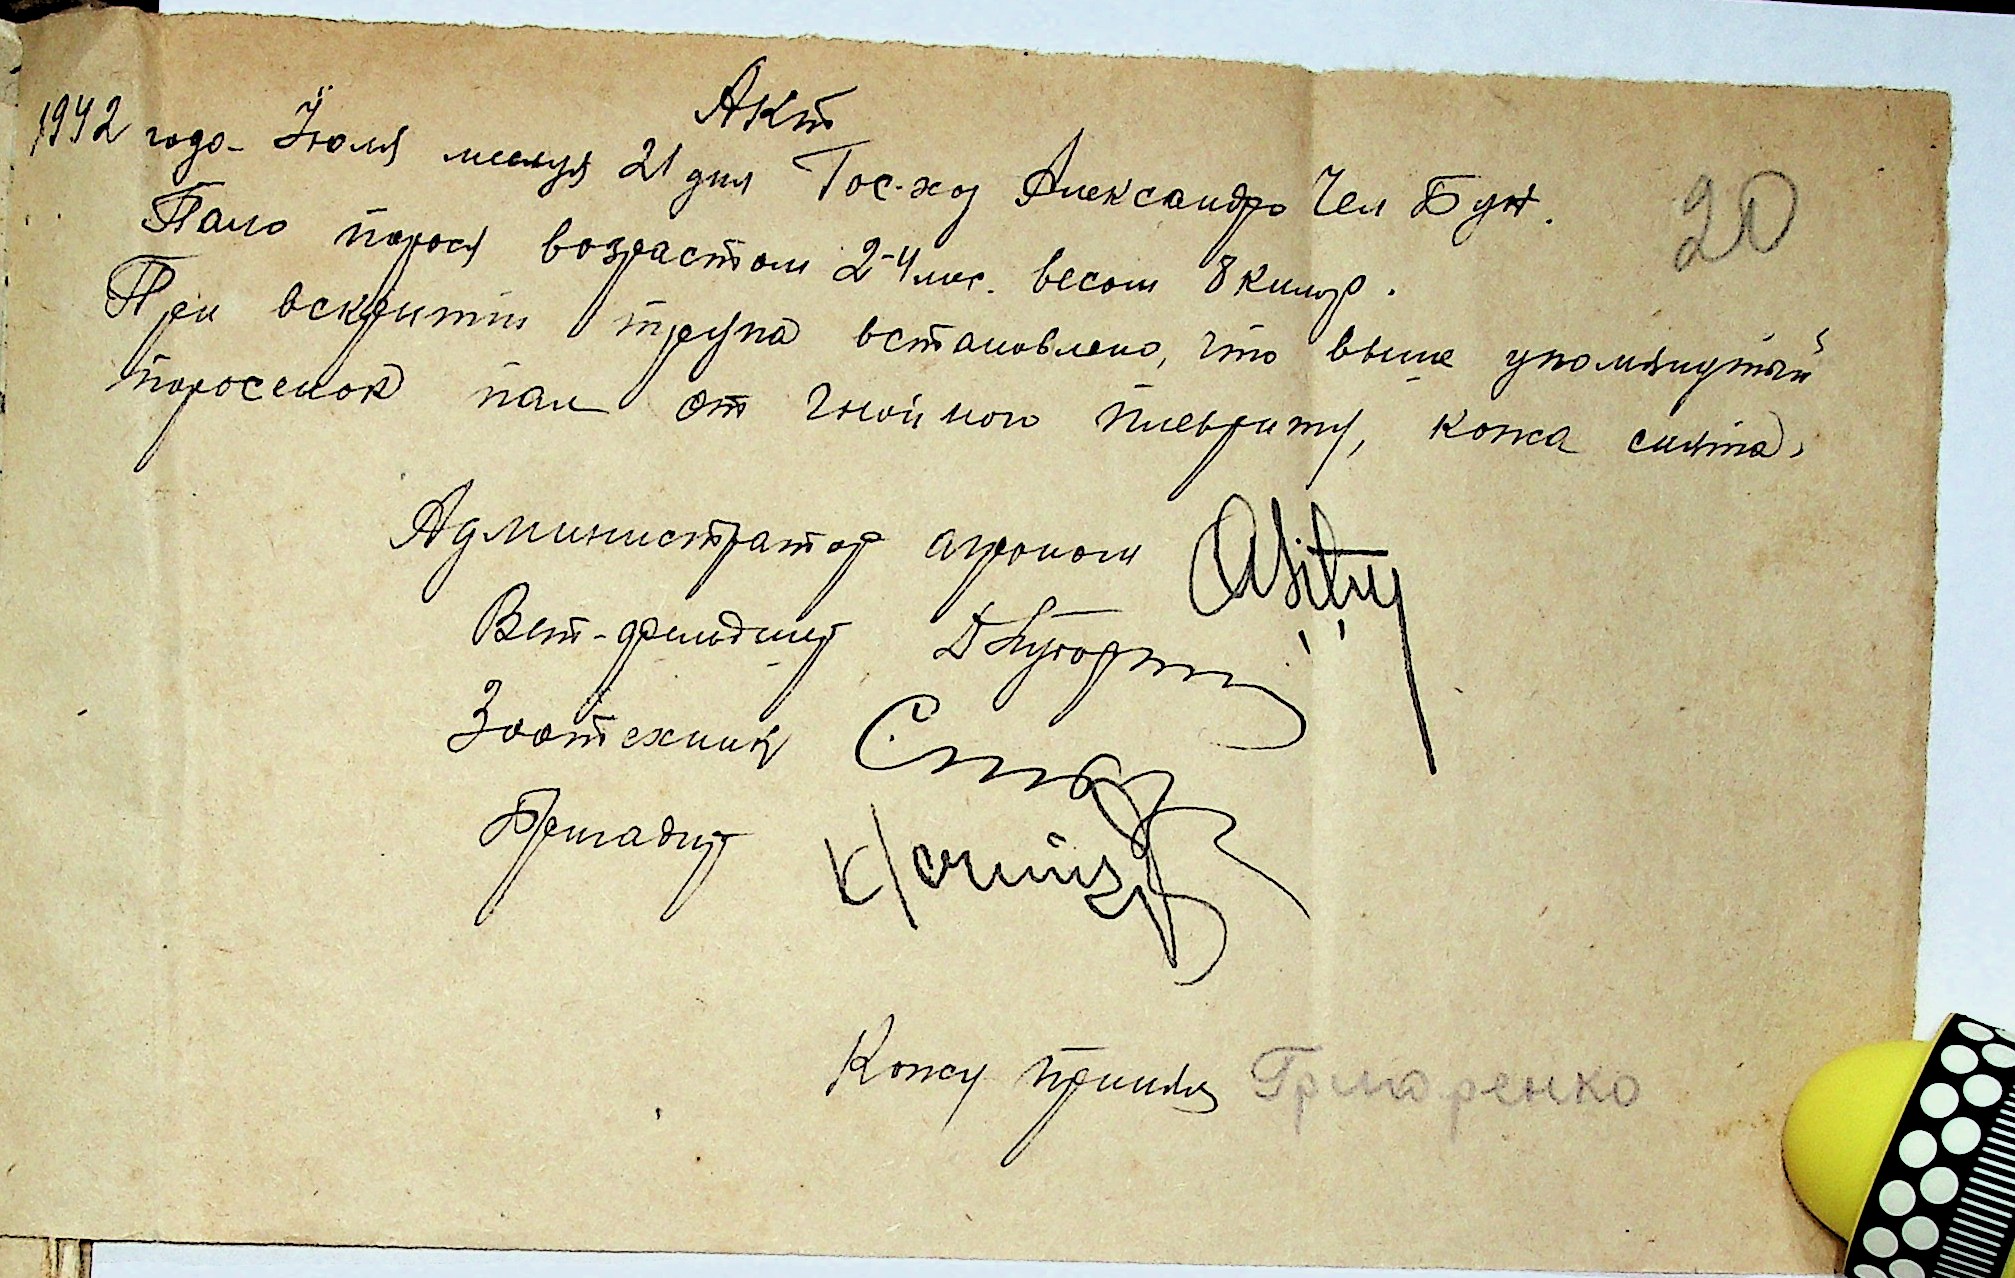 Акт
1942 года Июля месяця 21 дня Гос-ход Александро Чел Буж.
20
Пало порося возрастом 2-4 мес. весом 8 килогр.
При вскрытии трупа встановлено, что выше упомянутый
поросенок пал от гнойного плевриту, кожа снята,
Администратор агроном
Вет-фельдшер
Зоотехник
Бригадир
Кожу принял Григоренко